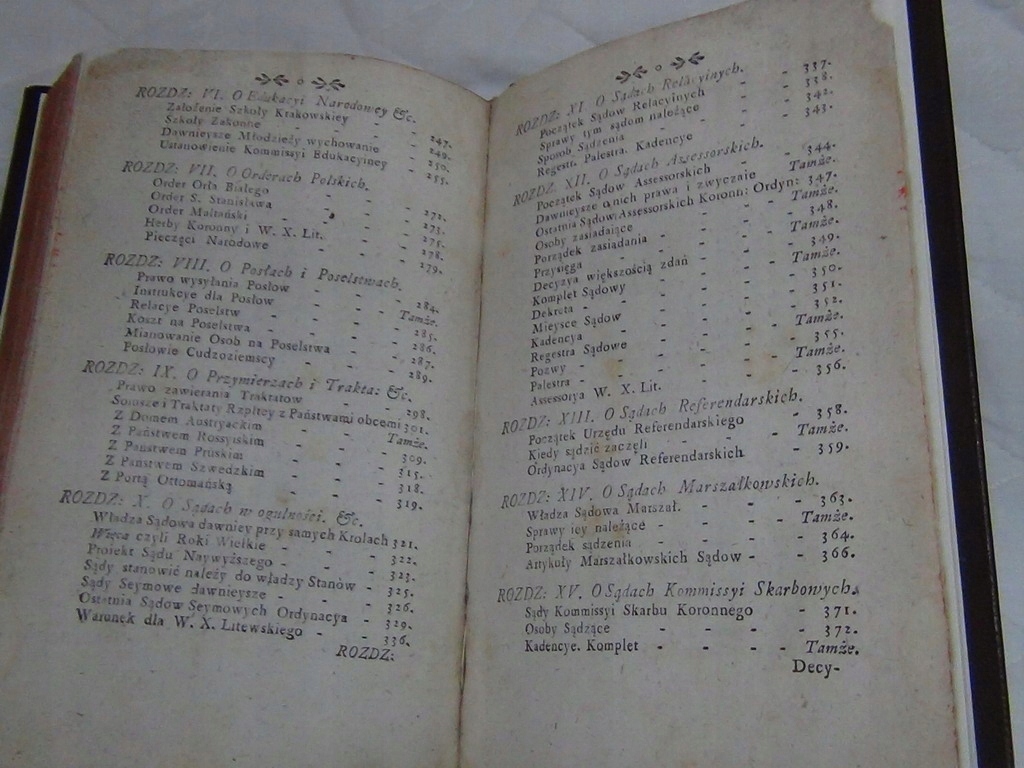 ROZDZ: VI. O Edukacyi Narodowey &c.
Założenie Szkoły Krakowskiey - - 247.
Szkoły Zakonne - - - 249.
Dawnieysze Młodzieży wychowanie - 250.
Ustanowienie Kommissyi Edukacyiney - 255.
ROZDZ: VII. O Orderach Polskich.
Order Orła Białego - - - 272.
Order S. Stanisława - - - 273.
Order Maltański - - - 275.
Herby Koronny i W. X. Lit. - - 278.
Pieczęci Narodowe - - - 279.
ROZDZ: VIII. O Posłach i Poselstwach.
Prawo wysyłania Posłow - - 284.
Instrukcye dla Posłow - - Tamże.
Relacye Poselstw - - - 285.
Koszt na Poselstwa - - - 286.
Mianowanie Osob na Poselstwa - - 287.
Posłowie Cudzoziemscy - - 289.
ROZDZ: IX. O Przymierzach i Trakta: &c.
Prawo zawierania Traktatow - - 298.
Soiusze i Traktaty Rzpltey z Państwami obcemi 301.
Z Domem Austryackim - - Tamże.
Z Państwem Rossyiskim - - 309.
Z Państwem Pruskim - - - 315.
Z Państwem Szwedzkim - - 318.
Z Portą Ottomańską - - - 319.
ROZDZ: X. O Sądach w ogulności. &c.
Władza Sądowa dawniey przy samych Krolach 321.
Wieca czyli Roki Wielkie - - - 322.
Proiekt Sądu Naywyższego - - - 323.
Sądy stanowić należy do władzy Stanów - 325.
Sądy Seymowe dawnieysze - - - 326.
Ostatnia Sądow Seymowych Ordynacya - 329.
Warunek dla W. X. Litewskiego - - 336.
ROZDZ:
ROZDZ: XI. O Sądach Relacyinych.
Początek Sądow Relacyinych - - 337.
Sprawy tym sądom należące - - 338.
Sposob Sądzenia - - - 342.
Regestr. Palestra. Kadencye - - 343.
ROZDZ: XII. O Sądach Assessorskich.
Początek Sądow Assessorskich - - 344.
Dawnieysze o nich prawa i zwyczaie Tamże.
Ostatnia Sądow Assessorskich Koronn: Ordyn: 347.
Osoby zasiadaiące - - - Tamże.
Porządek zasiadania - - - 348.
Przysięga - - - - Tamże.
Decyzya większością zdań - - 349.
Komplet Sądowy - - - Tamże.
Dekreta - - - - 350.
Mieysce Sądow - - - 351.
Kadencya - - - - 352.
Regestra Sądowe - - - Tamże.
Pozwy - - - - 355.
Palestra - - - - Tamże.
Assessorya W. X. Lit. - - - 356.
ROZDZ: XIII. O Sądach Referendarskich.
Początek Urzędu Referendarskiego - 358.
Kiedy sądzić zaczęli - - - Tamże.
Ordynacya Sądow Referendarskich - - 359.
ROZDZ: XIV. O Sądach Marszałkowskich.
Władza Sądowa Marszał. - - - 363.
Sprawy iey należące - - - Tamże.
Porządek sądzenia - - - - 364.
Artykuły Marszałkowskich Sądow - - 366.
ROZDZ: XV. O Sądach Kommissyi Skarbowych.
Sądy Kommissyi Skarbu Koronnego - 371.
Osoby Sądzące - - - - 372.
Kadencye. Komplet - - - - Tamże.
Decy-